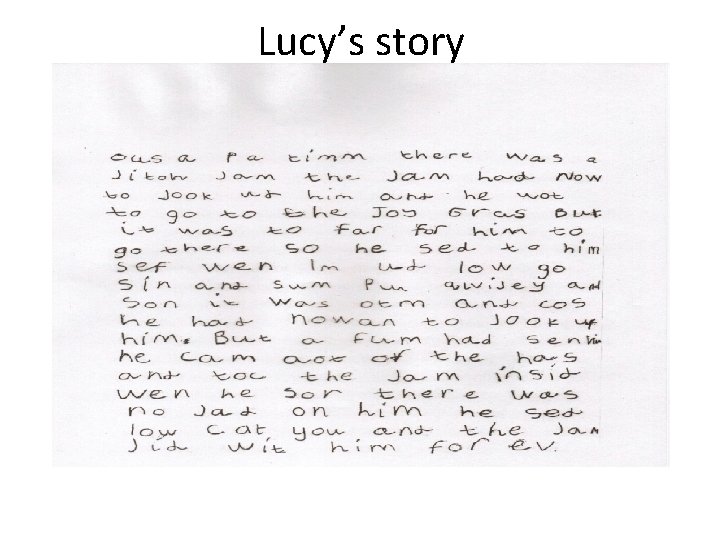 Lucy's story
ous a pa timm there was a
Jitoh Jam the Jam had Now
to Jook ut him and he wot
to go to the Joy Gras But
it was to far for him to
go there so he sed to him
sef wen Im ut low go
sin and sum Pun awisey and
Son it was otm and cos
he had nowan to Jook up
him. But a Fum had senhim
he cam aot of the has
and toc the Jam insid
wen he sor there was
no Jad on him he sed
low cat you and the Jam
Jid wit him for ev.